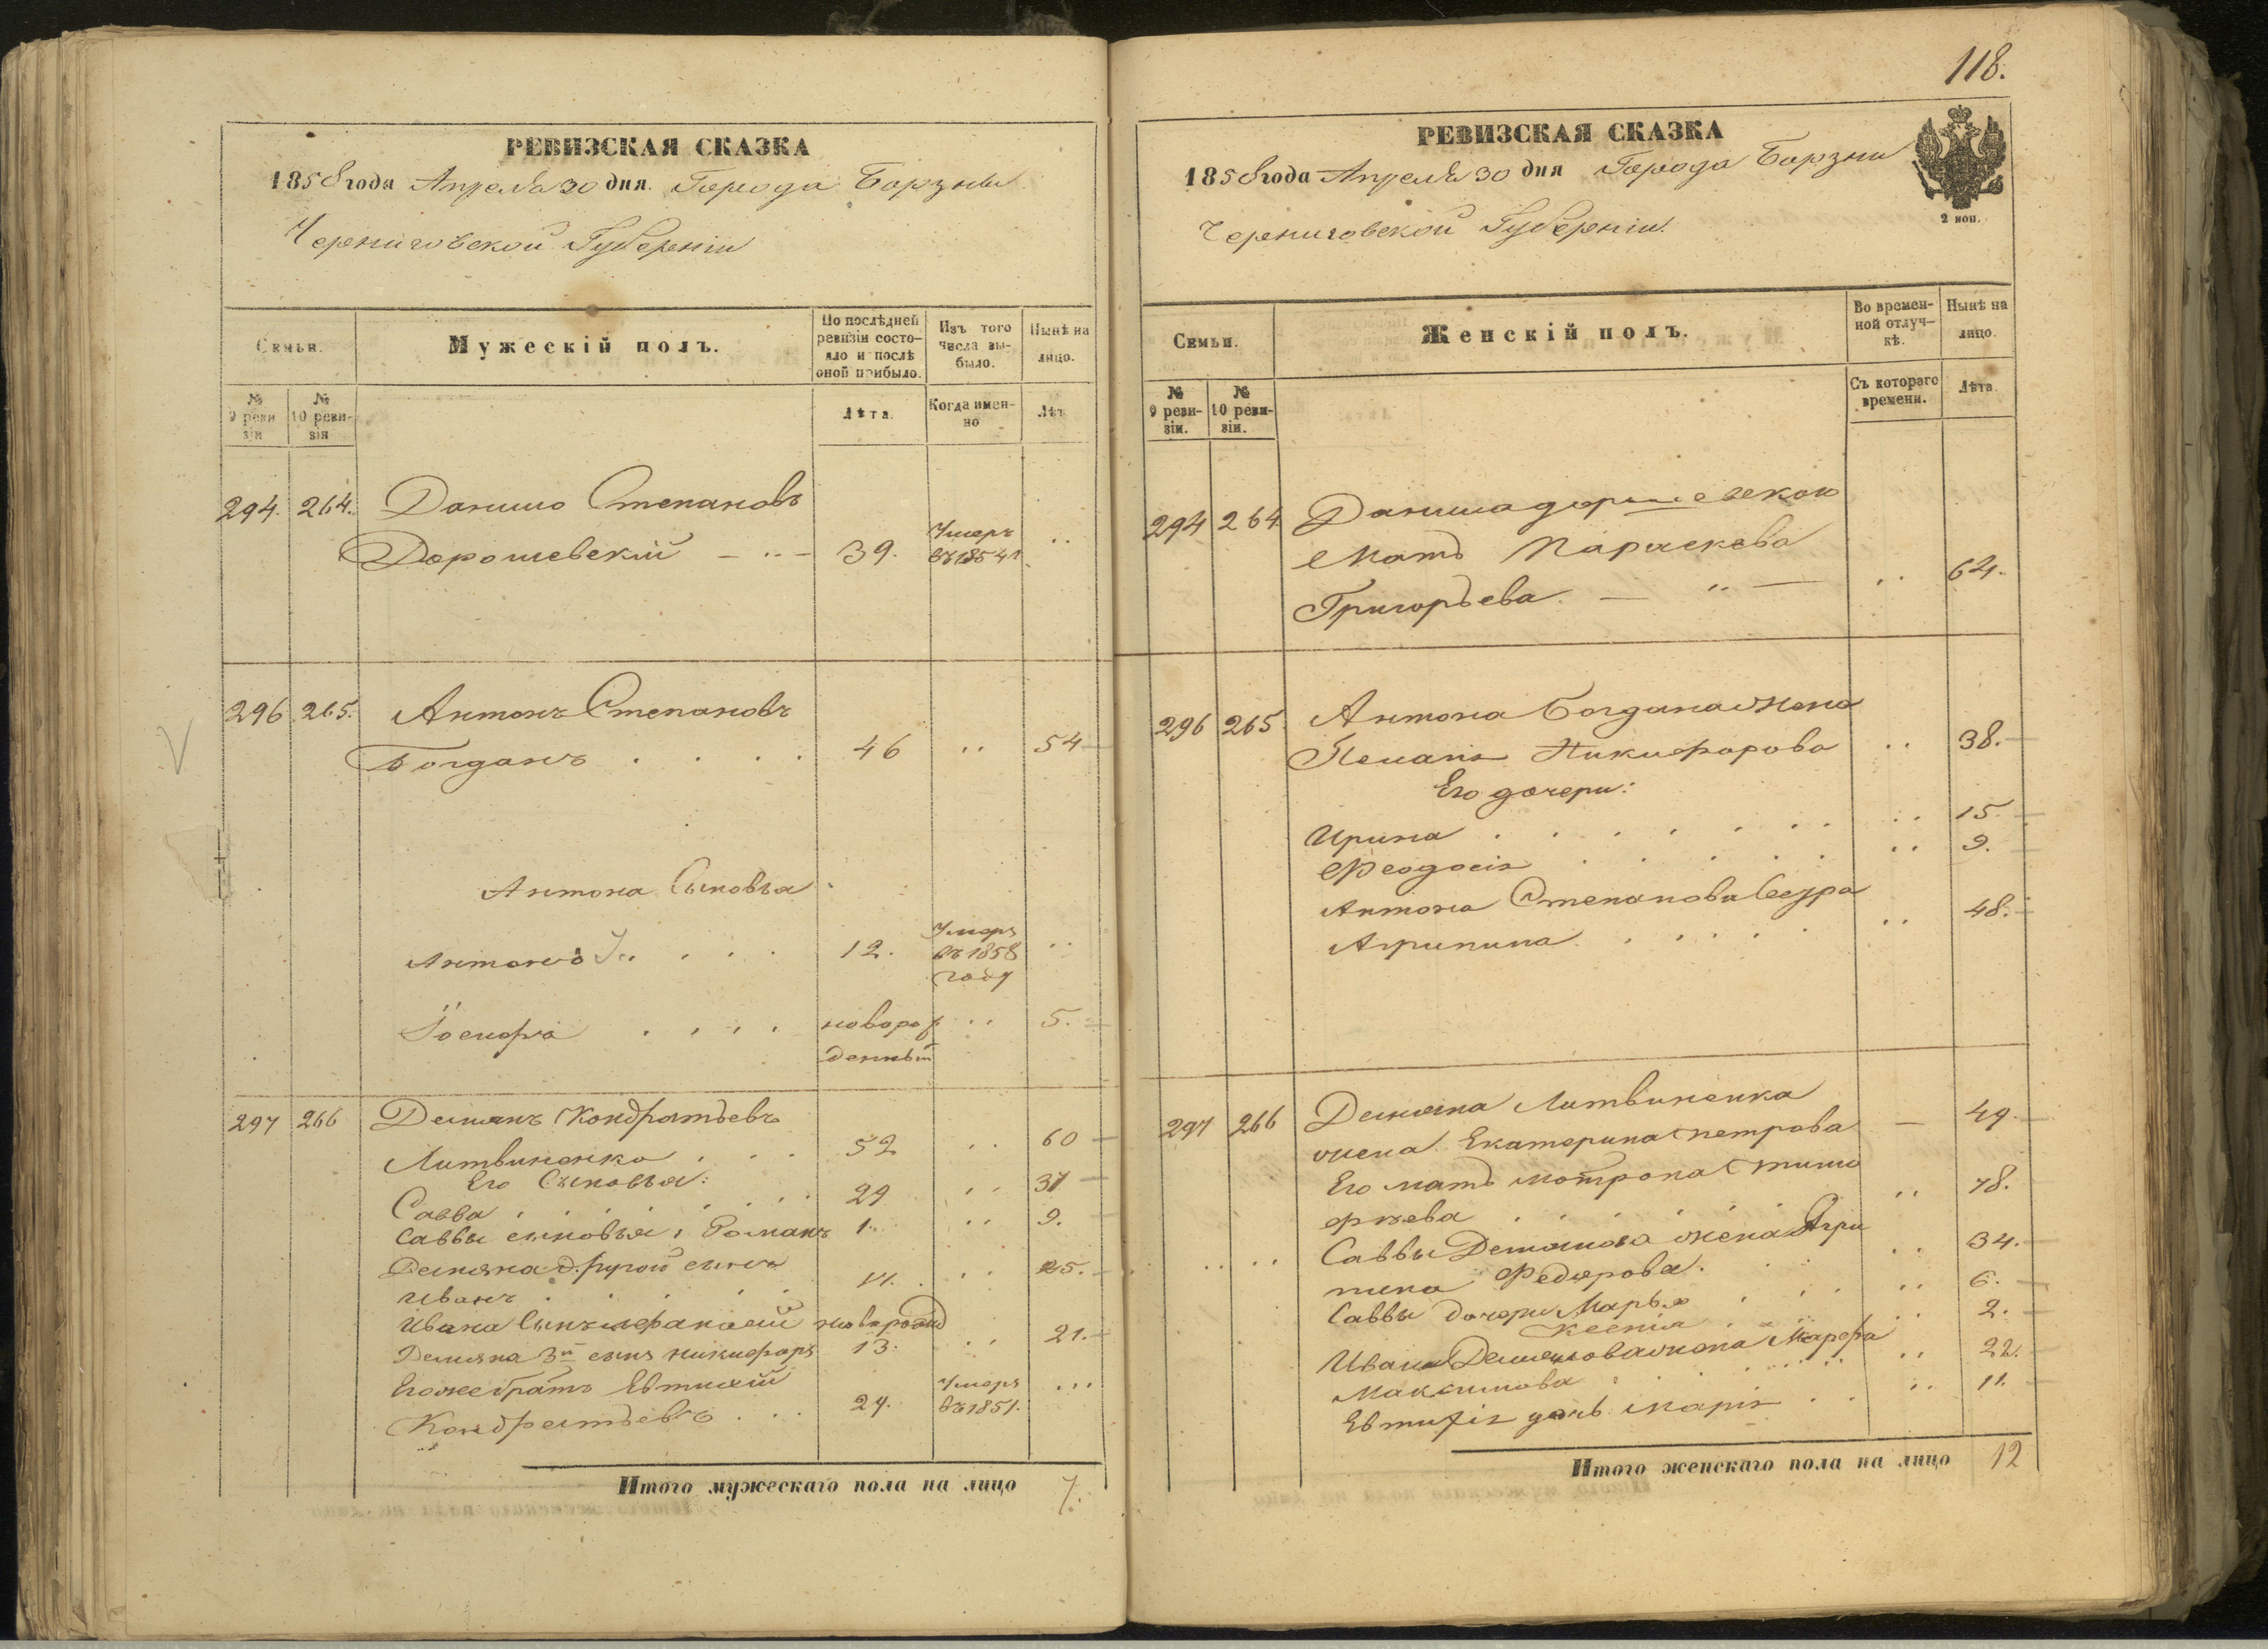 РЕВИЗСКАЯ СКАЗКА
1858 года Апреля 30 дня. Города Борзны
Черниговской Губерніи
Семьи.
Мужескій полъ.
По послѣдней ревизіи состояло и послѣ оной прибыло.
Изъ того числа выбыло.
Нынѣ на лицо.
№ 9 ревизіи
№ 10 ревизіи
Лѣта.
Когда именно
Лѣт
294. 264. Данило Степановъ
Дорошевскій 39. Умеръ въ 1854 г.
296 265. Антонъ Степановъ
Богданъ 46 54
Антона Сыновья
Антонъ 12. Умеръ въ 1858 году
Іосифъ новорожденный 5.
297 266 Демянъ Кондратьевъ
Литвиненко 52 60
Его Сыновья:
Савва 29 37
Саввы сыновья: Романъ 1. 9.
Демяна другой сынъ
Иванъ 25.
Ивана Сынъ новорожд
Демяна 3й сынъ Никифоръ 13. 21.
Его же братъ Евтихій
Кондратьевъ 24. Умеръ въ 1851.
Итого мужескаго пола на лицо 7.
118.
РЕВИЗСКАЯ СКАЗКА
1858 года Апреля 30 дня Города Борзны
Черниговской Губерніи.
2 коп.
Семьи.
Женскій полъ.
Во временной отлучкѣ.
Нынѣ на лицо.
№ 9 ревизіи.
№ 10 ревизіи.
Съ котораго времени.
Лѣта.
294 264 Данила
Мать Параскева
Григорьева 64.
296 265 Антона Богдана жена
Никифорова 38.
Его дочери:
Ирина 15.
Феодосія 9.
Антона Степанова Сестра
Агрипина 48.
297 266 Демяна Литвиненка
жена Екатерина Петрова 49.
Его мать Мотрона Тимо
фѣева 78.
Саввы Демянова жена Агри
пина Федорова. 34.
Саввы дочери Марья 6.
Ксенія 2.
Ивана Демянова жена Марфа
Максимова 22.
Евтихія дочь Марія 11.
Итого женскаго пола на лицо 12